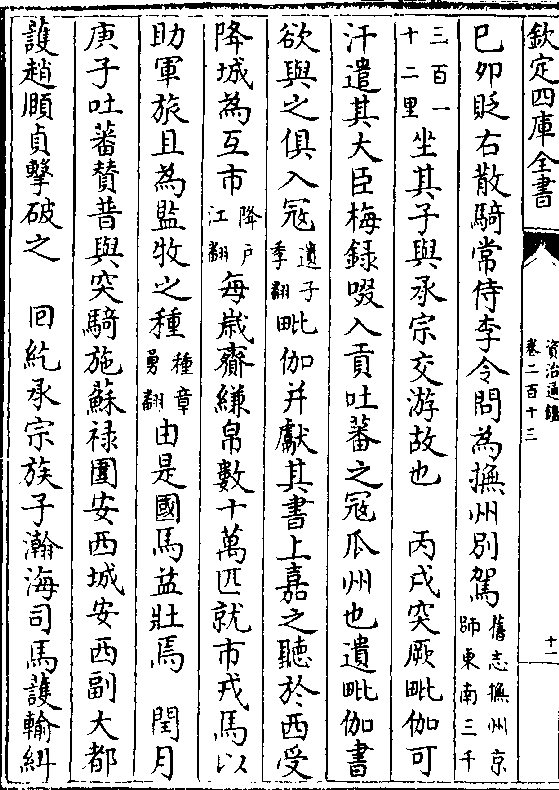 欽定四庫全書
資治通鑑
卷二百十三
十一
巳夘貶右散騎常侍李令問為撫州別駕舊志撫州京師東南三千
三百一十二里坐其子與承宗交游故也　丙戌突厥毗伽可
汗遣其大臣梅録啜入貢吐蕃之冦瓜州也遺毗伽書
欲與之俱入冦遺子季翻毗伽并獻其書上嘉之聽於西受
降城為互市降户江翻每嵗齎縑帛數十萬匹就市戎馬以
助軍旅且為監牧之種種章勇翻由是國馬益壯焉　閏月
庚子吐蕃賛普與突騎施蘇禄圍安西城安西副大都
䕶趙頥貞擊破之　回紇承宗族子瀚海司馬䕶輸糾